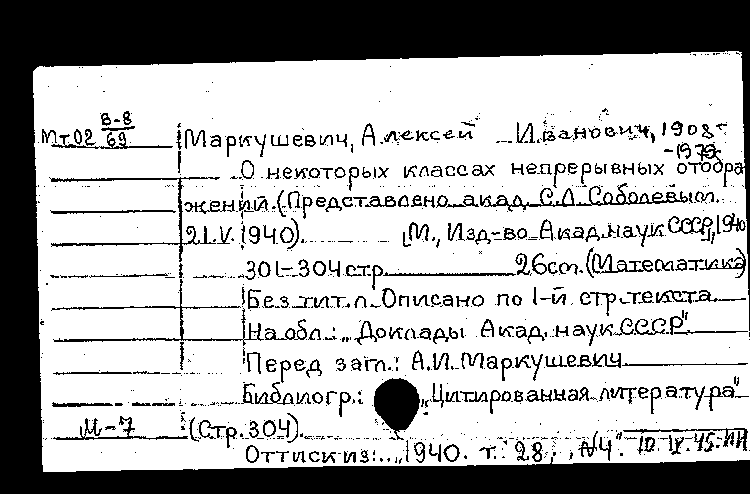 В-8
Мт.02 69
Маркушевич, Алексей Иванович, 1908-
-1979
О некоторых классах непрерывных отобра
жений. (Представлено акад. С.Л. Соболевым
21.V.1940). [М., Изд-во Акад. наук СССР], 1940
301-304 стр. 26 см. (Математика)
Без тит.л. Описано по 1-й стр. текста.
На обл.: "Доклады Акад. наук СССР"
Перед загл.: А.И. Маркушевич.
Библиогр.: "Цитированная литература"
М-7 (Стр. 304).
Оттиск из: ... 1940. т. 28, №4. 10.IX.45.